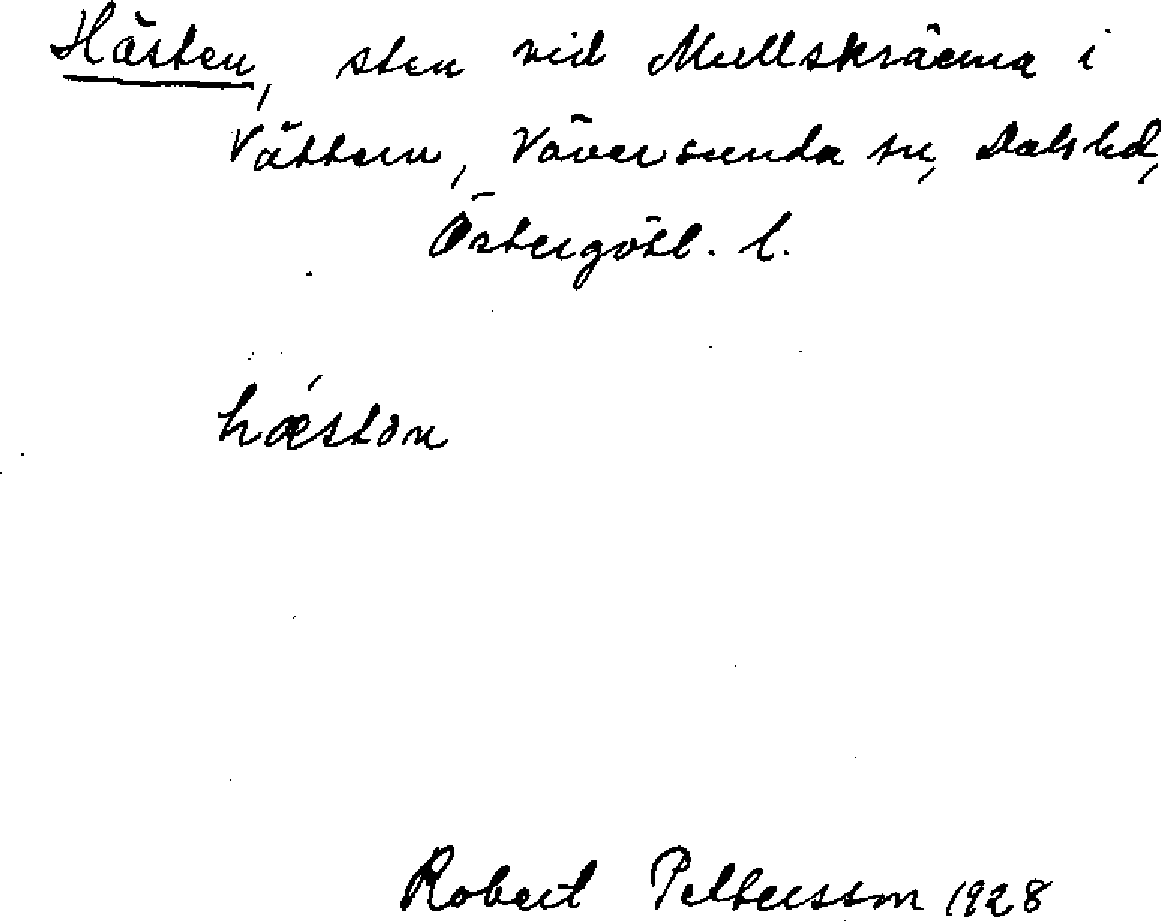 Hästen, sten vid Mullskräerna i
Vättern, Väversunda sn, Dals hd,
Östergötl. l.
hǽstən
Robert Pettersson 1928